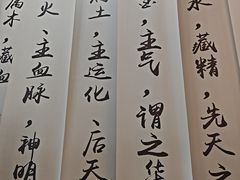 水，藏精，先天之
主气，谓之华
土，主运化，后天
火，主血脉，神明
属木，藏血